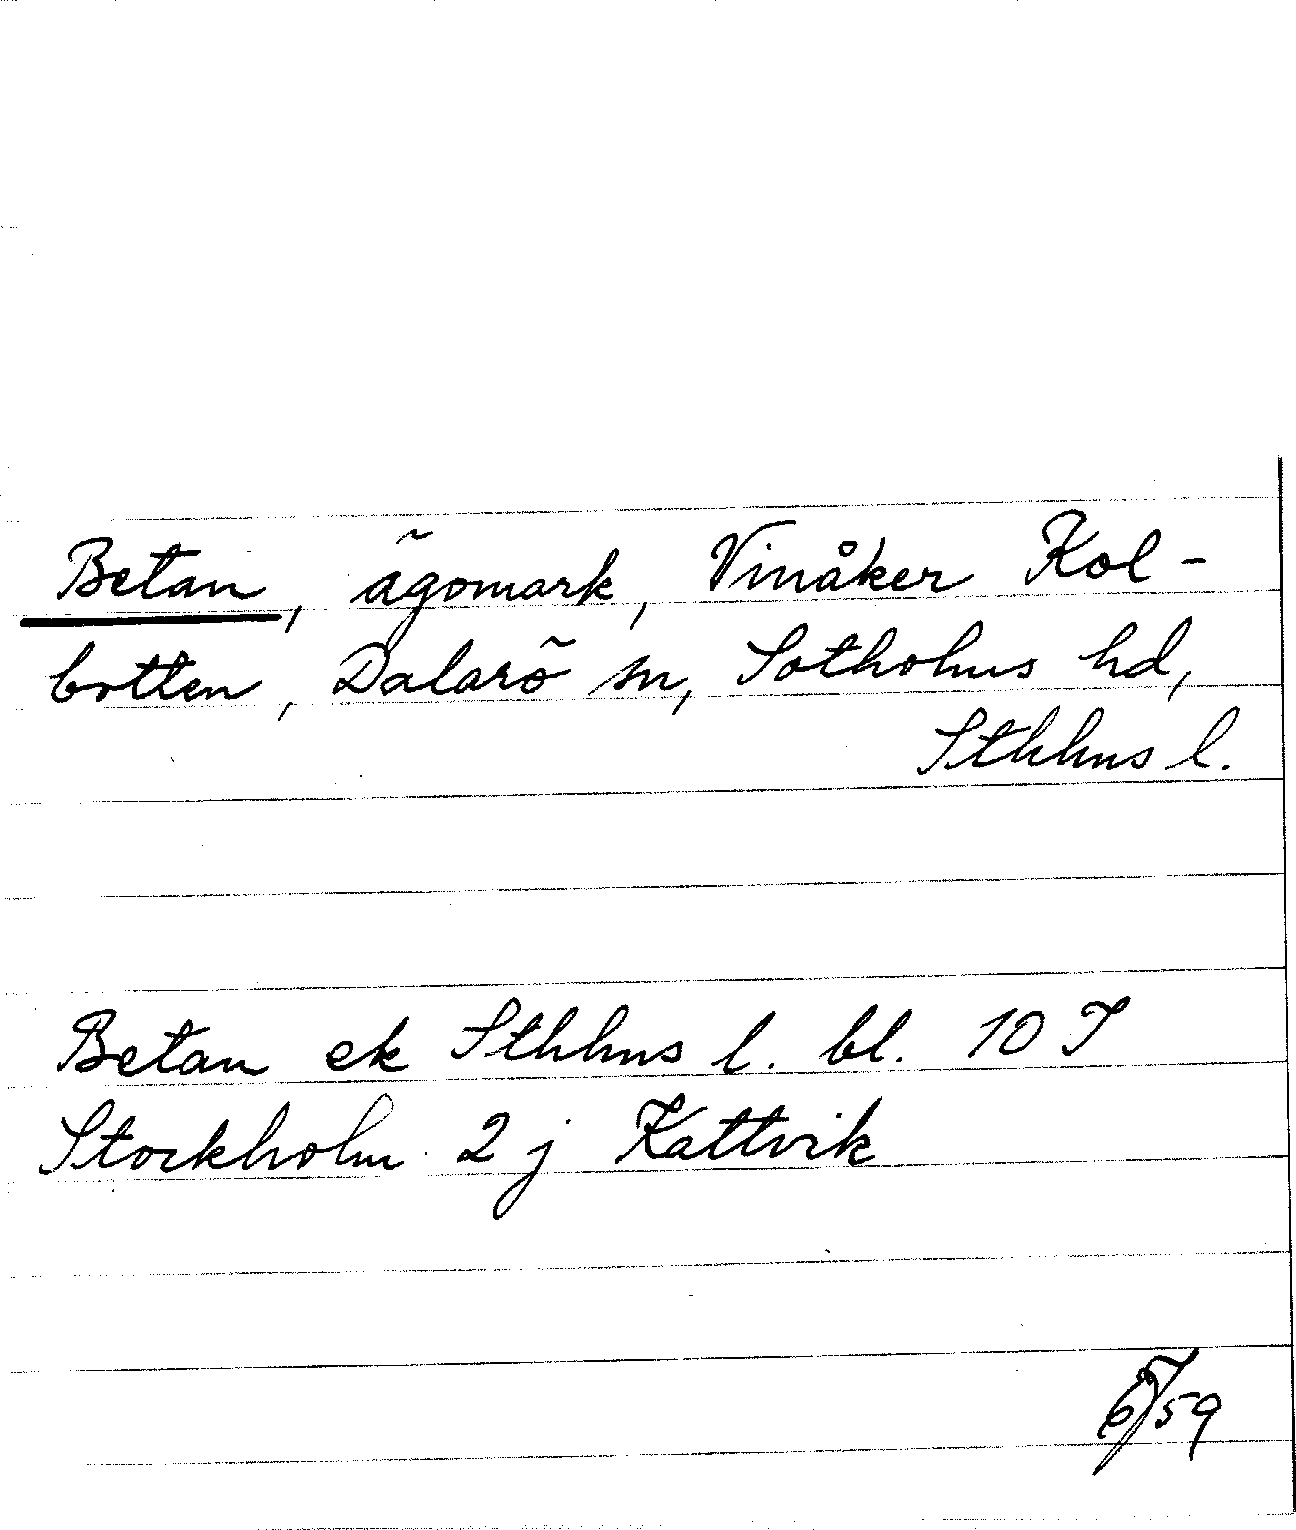 Betan, ägomark, Vinåker Kol-
botten, Dalarö sn, Sotholms hd,
Sthlms l.
Betan ek Sthlms l. bl. 10 I
Stockholm 2 j Kattvik